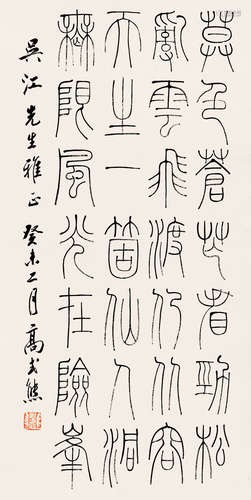 莫色蒼茫看勁松
亂雲飛渡仍从容
天生一箇仙人洞
無限風光在險峯
吴江先生雅正 癸未二月 高式熊